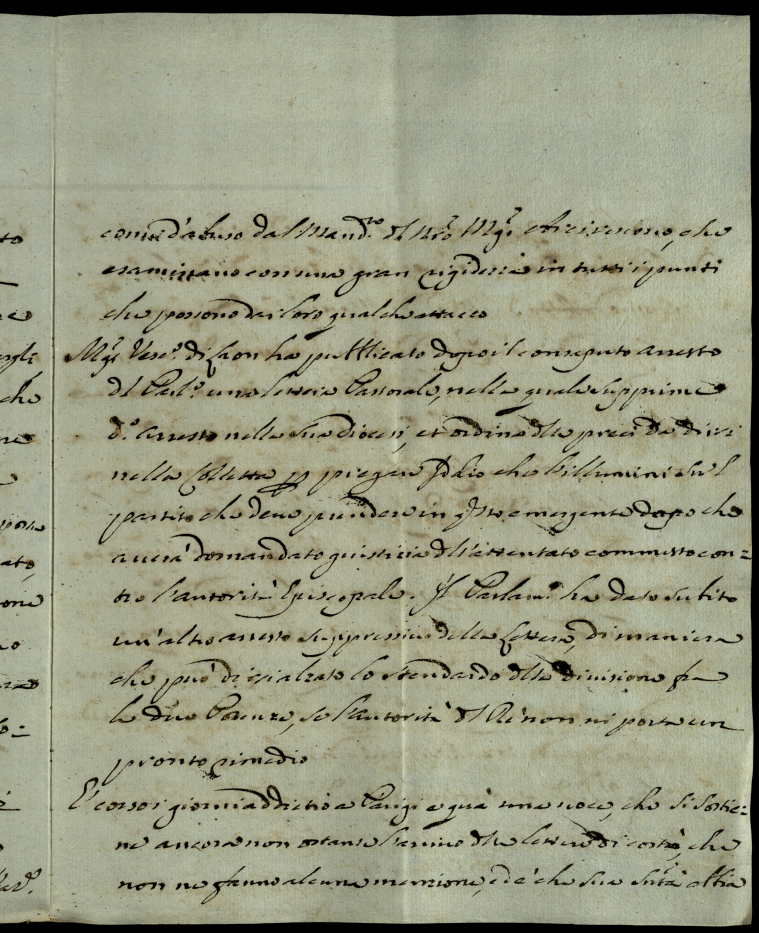 to
come d'abuso dal Mand.to del nro Mgr Arcivescovo, che
esaminano con una gran rigidezza in tutti i punti
che possono dar loro qualche attacco
Mgr Vesc.o di Laon ha pubblicato dopo il consaputo arresto
del Parl.o una lettera Pastorale, nella quale supprime
d.o arresto nella sua diocesi, et ordina delle preci da dirsi
nella Colletta per piegare Iddio che l'illumini sul
partito che deve prendere in questo emergente dopo che
averà domandato giustizia dell'attentato commesso con=
tro l'autorità Episcopale. Il Parlam.o ha dato subito
un'altro arresto suppressivo della Lettera, di maniera
che può dirsi alzato lo stendardo della divisione fra
le due Potenze, se l'autorità del Rè non vi porta un
pronto rimedio
E' corsa i giorni addietro a Parigi e quà una voce, che si sostie=
ne ancora non ostante l'arrivo delle lettere di costà, che
non ne fanno alcuna menzione, ed è che Sua Stà abbia
che
ato,
one